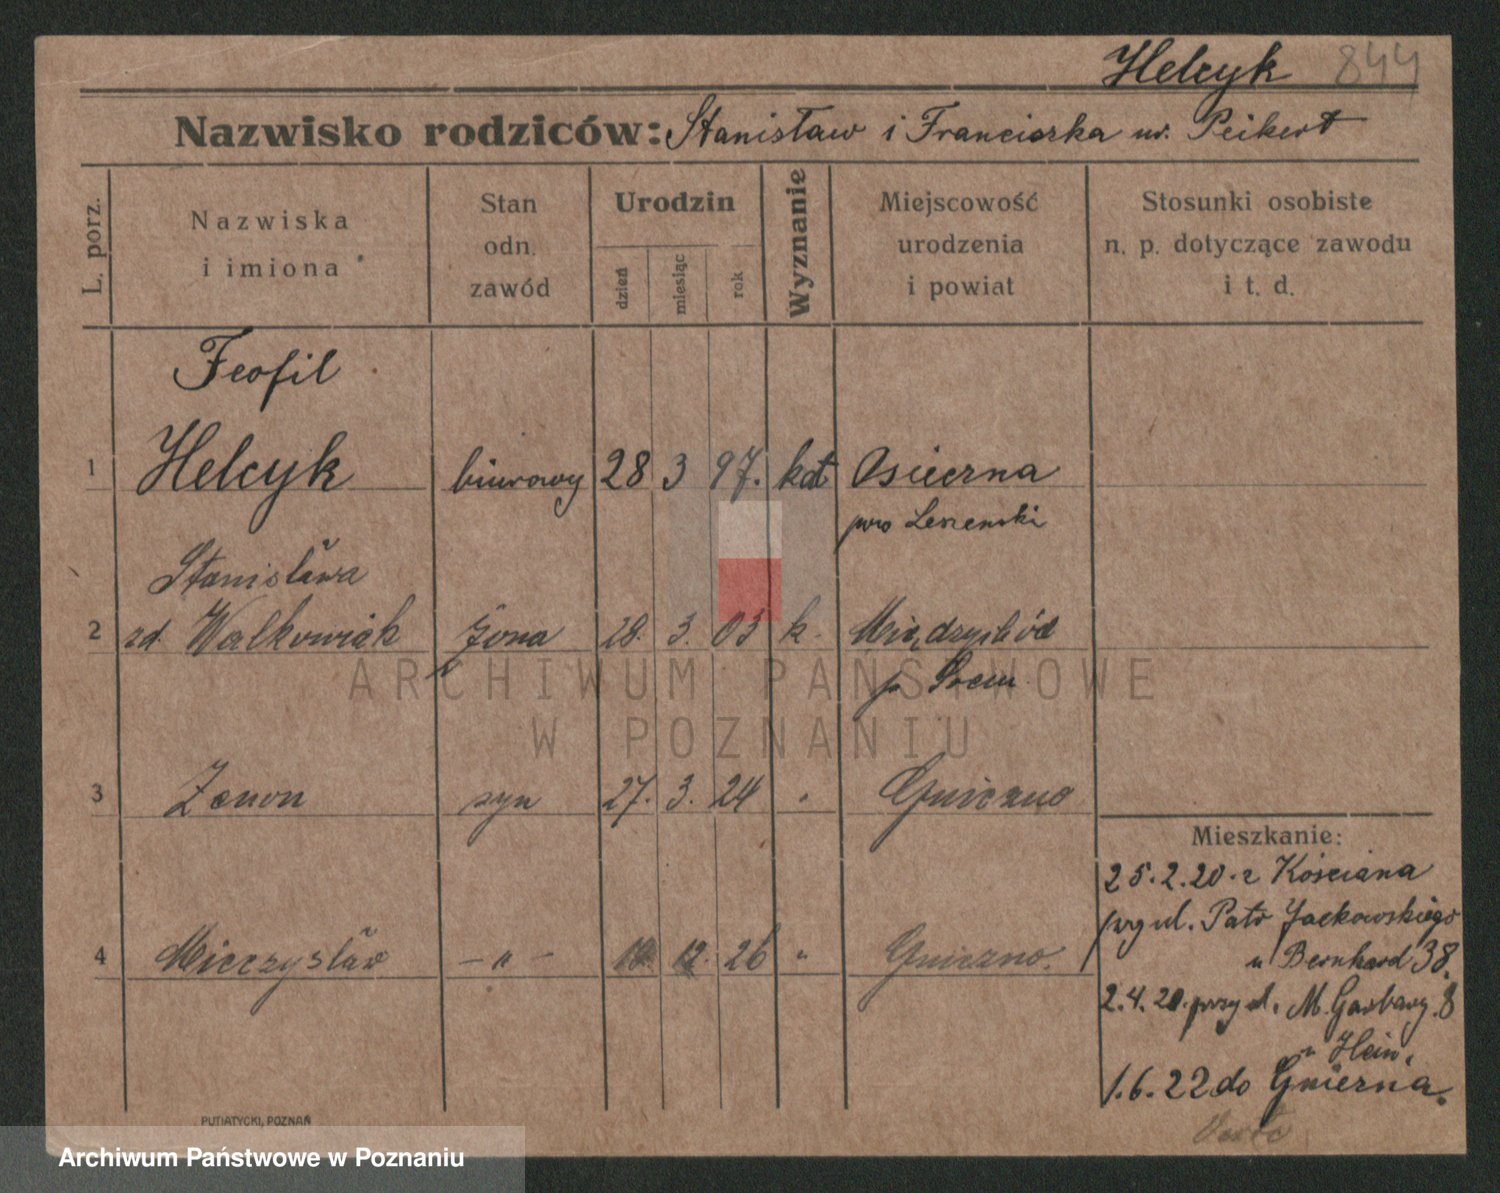 Helcyk 844
Nazwisko rodziców: Stanisław i Franciszka ur. Peikert
L. porz.
Nazwiska
i imiona
Stan
odn.
zawód
Urodzin
dzień
miesiąc
rok
Wyznanie
Miejscowość
urodzenia
i powiat
Stosunki osobiste
n. p. dotyczące zawodu
i t. d.
Teofil
1 Helcyk biurowy 28 3 97. kat Osieczna
pow Leszenski
Stanisława
2 zd. Walkowiak żona 28. 3. 03 k. Międzychód
p. Śrem
3 Zenon syn 27. 3. 24 Gniezno
4 Mieczysław – " – 12. 26 " Gniezno.
Mieszkanie:
25.2.20. z Kościana
przy ul. Patr Jackowskiego
u Bernhard 38.
2.4.20. przy ul. M. Garbary. 8
u Hein.
1.6.22 do Gniezna.
PUTIATYCKI, POZNAŃ
ARCHIWUM PAŃSTWOWE
W POZNANIU
Archiwum Państwowe w Poznaniu